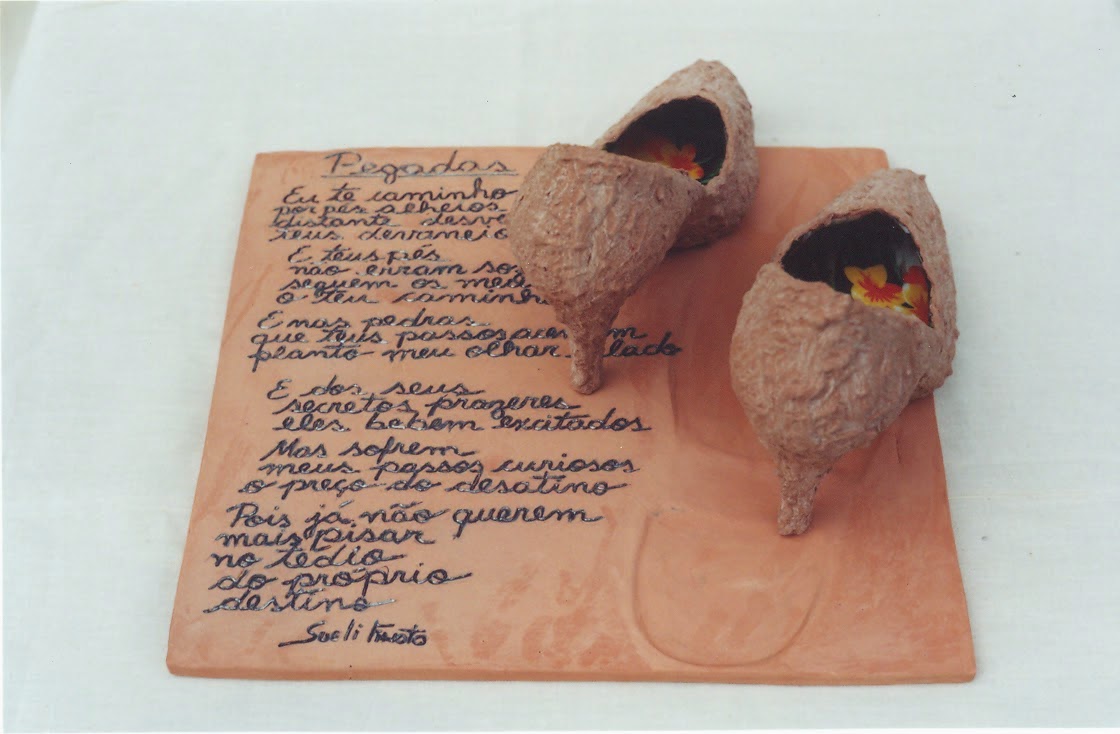 Pegadas
Eu te caminho
por pés alheios
distante desve
seus devaneio
E teus pés
não erram soz
seguem os meu
o teu caminh
E nas pedras
que teus passos
planto meu olhar lado
E dos seus
secretos prazeres
eles bebem excitados
Mas sofrem
meus passos curiosos
o preço do desatino
Pois já não querem
mais pisar
no tédio
do próprio
destino
Sueli